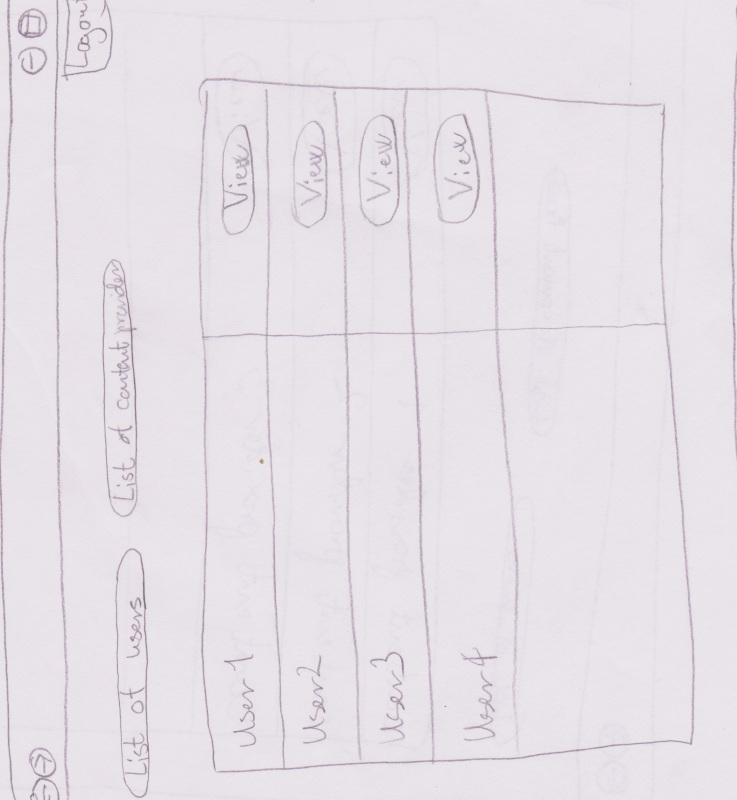 Logout
List of users
List of content provider
User 1 View
User 2 View
User 3 View
User 4 View